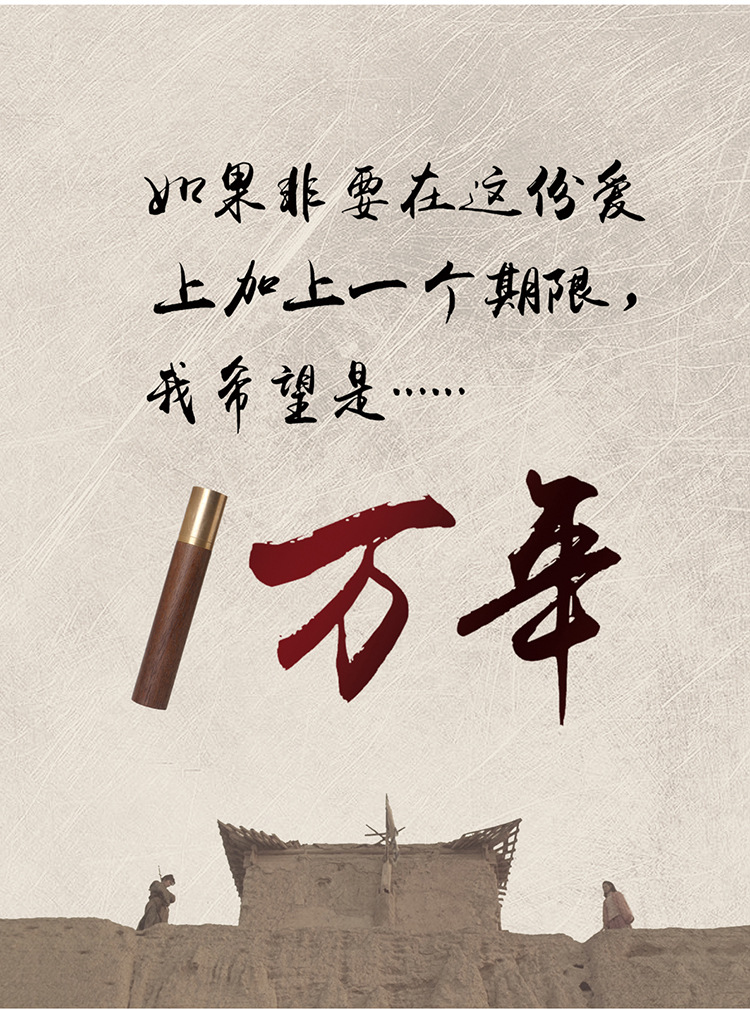 如果非要在这份爱
上加上一个期限，
我希望是……
1万年